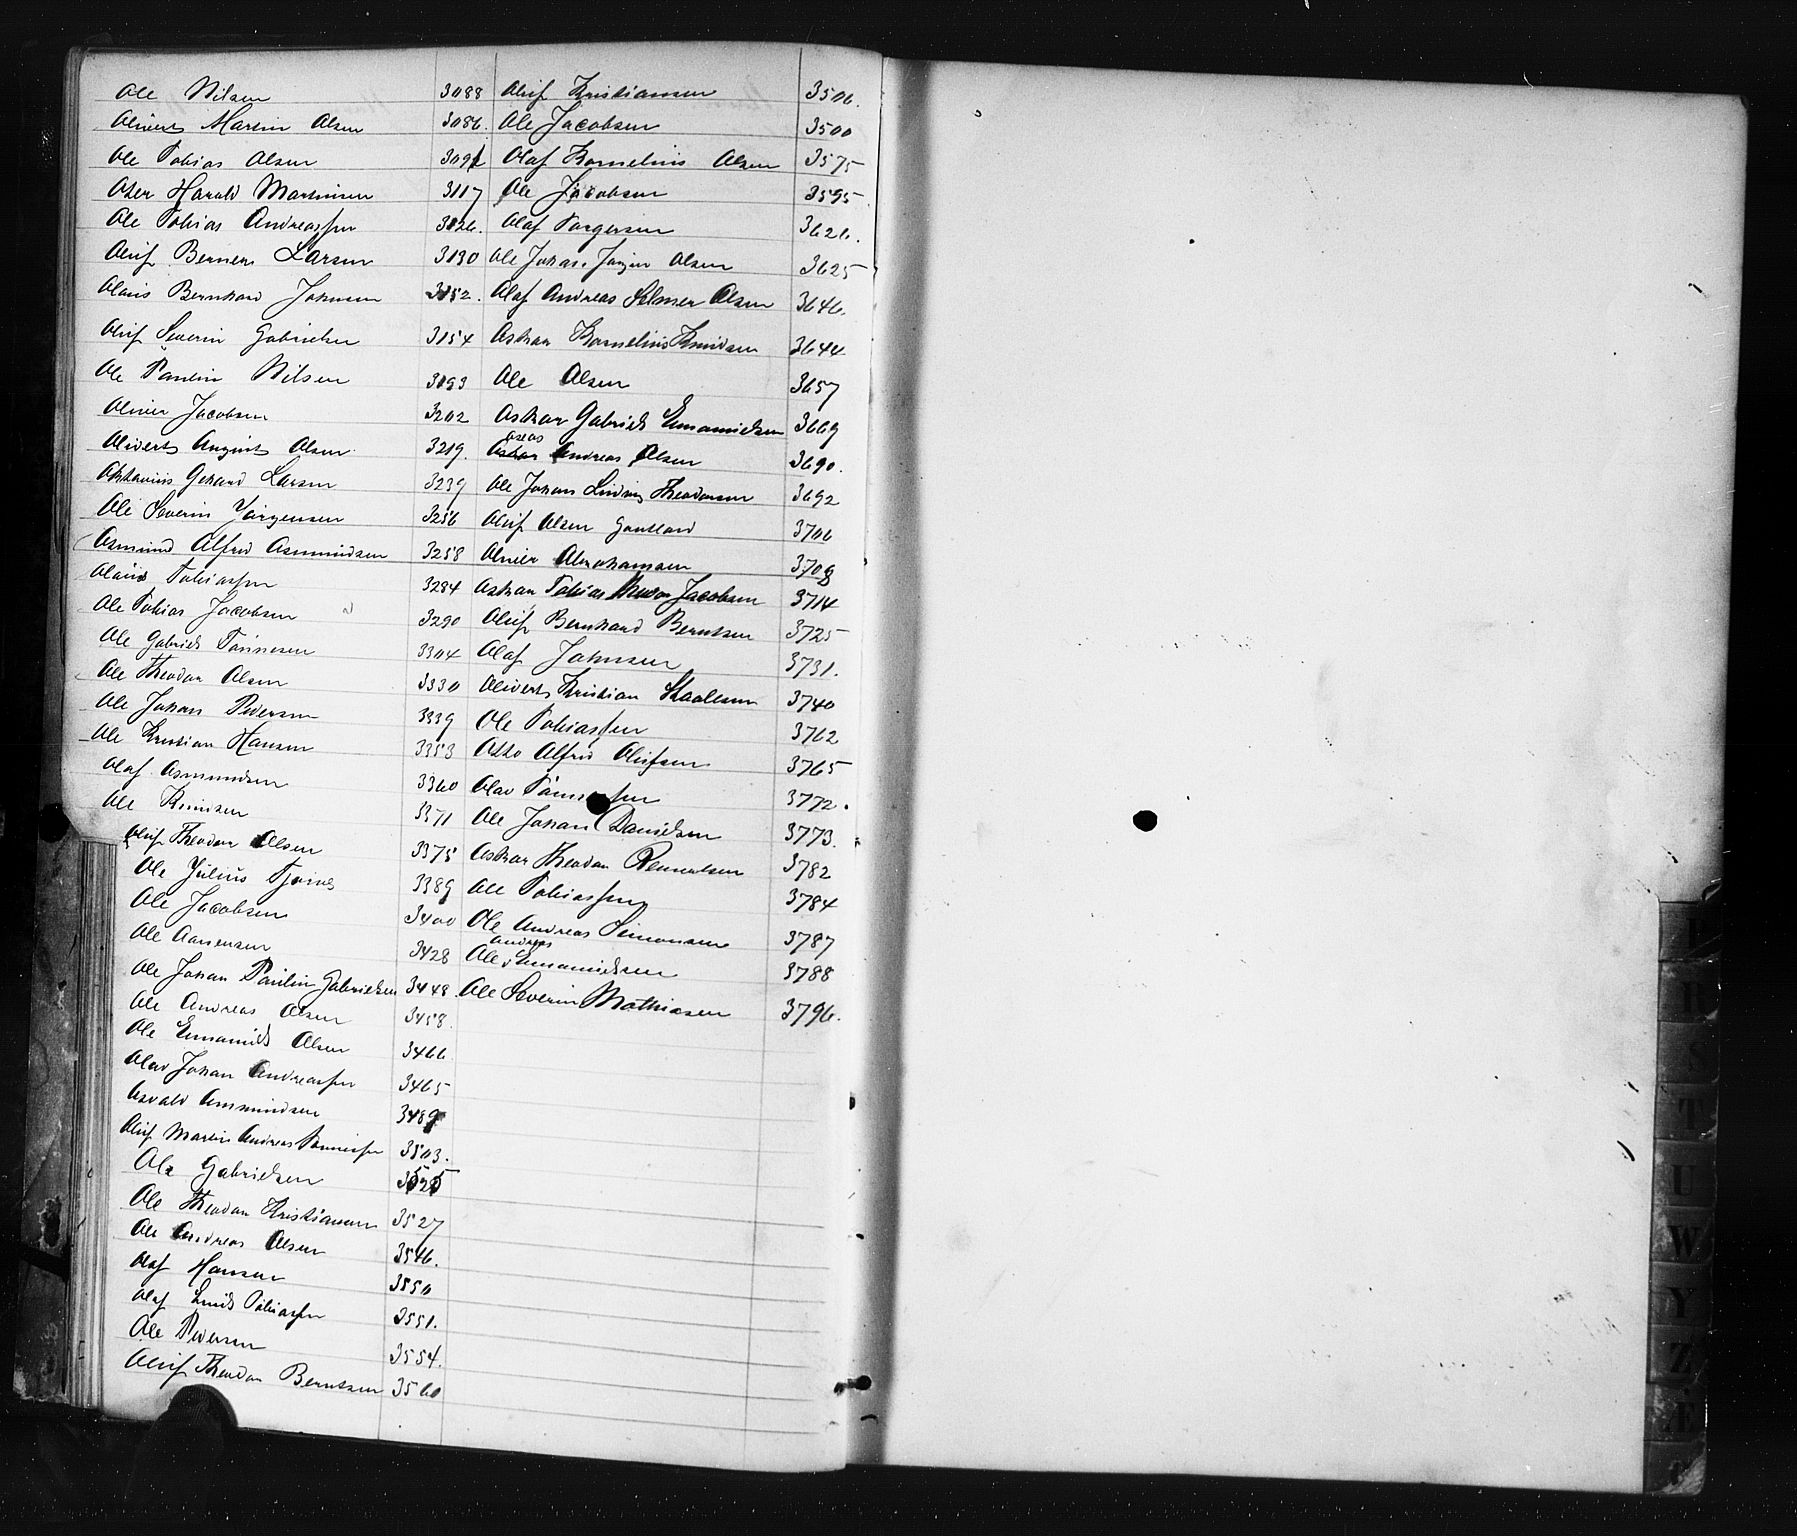 Ole Nilsen 3088
Oliverts Martin Olsen 3086.
Ole Tobias Olsen 3091
Oster Harald Martinsen 3117
Ole Tobias Andreassen 3126.
Oluf Berner Larsen 3130
Olaus Bernhard Johnsen 3152.
Oluf Severin Gabrielsen 3154
Ole Paulin Nilsen 3193
Olivier Jacobsen 3202
Oliverts August Olsen 3219.
Oktavius Gerhard Larsen 3239
Ole Severin Jörgensen 3256
Osmund Alfred Osmundsen 3258
Olaus Tobiassen 3284
Ole Tobias Jacobsen 3290
Ole Gabriel Tönnesen 3304
Ole Theodor Olsen 3330
Ole Johan Pedersen 3339
Ole Kristian Hansen 3353
Olaf Osmundsen 3360
Ole Knudsen 3371
Oluf Theodor Olsen 3375
Ole Julius Tjomes 3389
Ole Jacobsen 3400
Ole Aanensen 3428
Ole Johan Paulin Gabrielsen 3448.
Ole Andreas Olsen 3458.
Ole Emanuel Olsen 3466.
Olav Johan Andreassen 3465
Osvald Ommundsen 3489
Oluf Martin Andreas Tönnessen 3503.
Ole Gabrielsen 3525
Ole Theodor Kristiansen 3527
Ole Andreas Olsen 3546.
Olaf Hansen 3550
Olaf Emil Tobiassen 3551.
Ole Pedersen 3554.
Oluf Theodor Berntsen 3560
Oluf Kristiansen 3506.
Ole Jacobsen 3500
Olaf Kornelius Olsen 3575
Ole Jacobsen 3595
Olaf Torgersen 3626.
Ole Johan Jörgen Olsen 3625
Olaf Andreas Selmer Olsen 3646.
Oskar Kornelius Knudsen 3644
Ole Olsen 3657
Oskar Gabriel Emanuelsen 3669
Oskar Andreas Olsen 3690.
Ole Johan Ludvig Theodorsen 3692
Oluf Olsen Gautland 3706
Olivier Abrahamsen 3708
Oskar Tobias Theodor Jacobsen 3714
Oluf Bernhard Berntsen 3725
Olaf Johnsen 3731.
Oliverts Kristian Staalesen 3740
Ole Tobiassen 3762
Otto Alfred Olufsen 3765
Olav Tönnessen 3772.
Ole Johan Danielsen 3773.
Oskar Theodor Reinertsen 3782
Ole Tobiassen 3784
Ole Andreas Simonsen 3787
Ole Andreas Emanuelsen 3788
Ole Severin Mathiasen 3796.
R
S
T
U
W
Y
Z
Æ